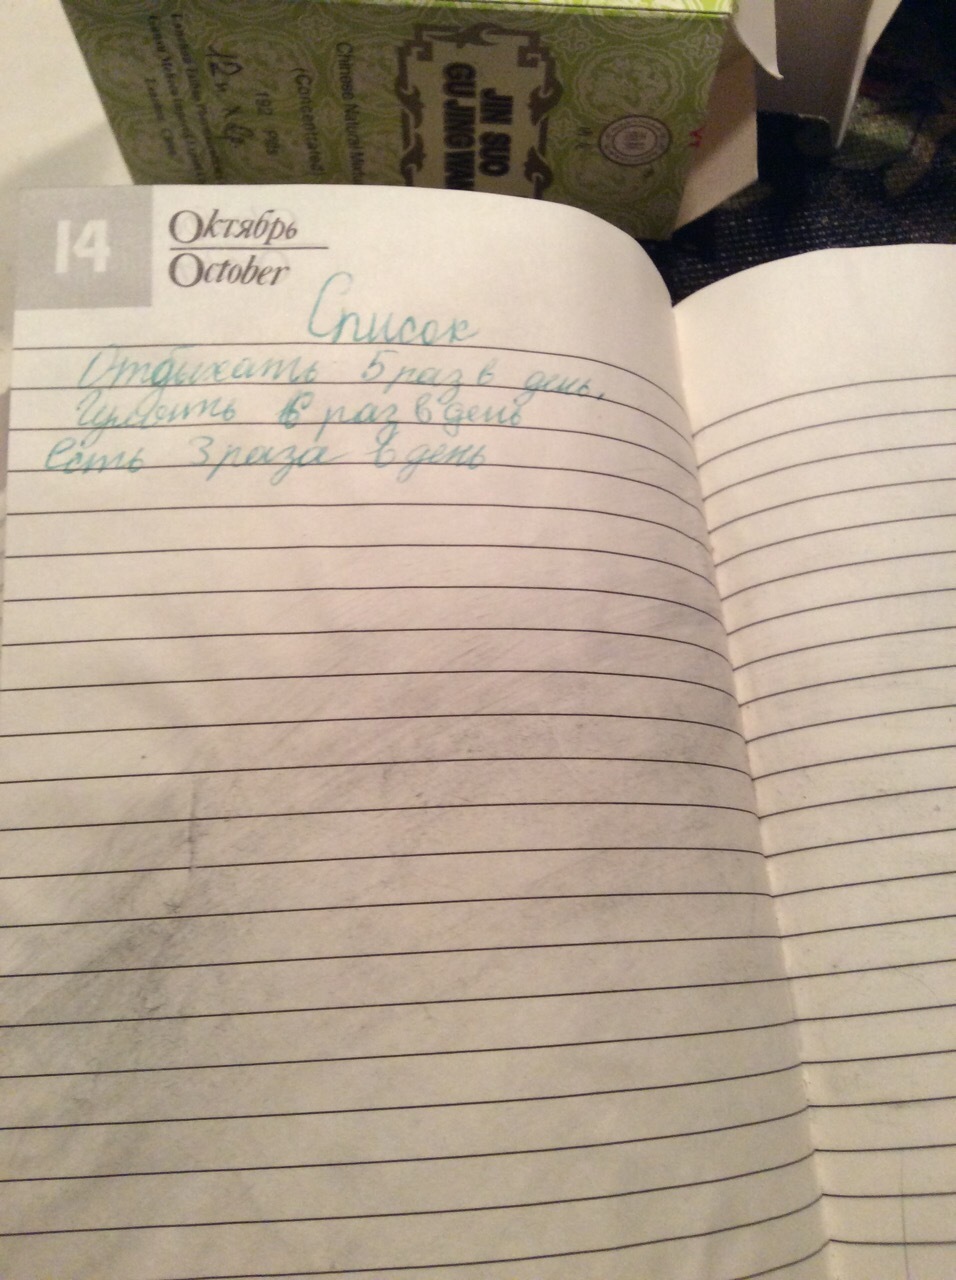 JIN SUO
GU JING WAN
Chinese Natural
(Concentrated)
192 Pills
14
Октябрь
October
Список
Отдыхать 5 раз в день.
6 раз в день
есть 3 раза в день